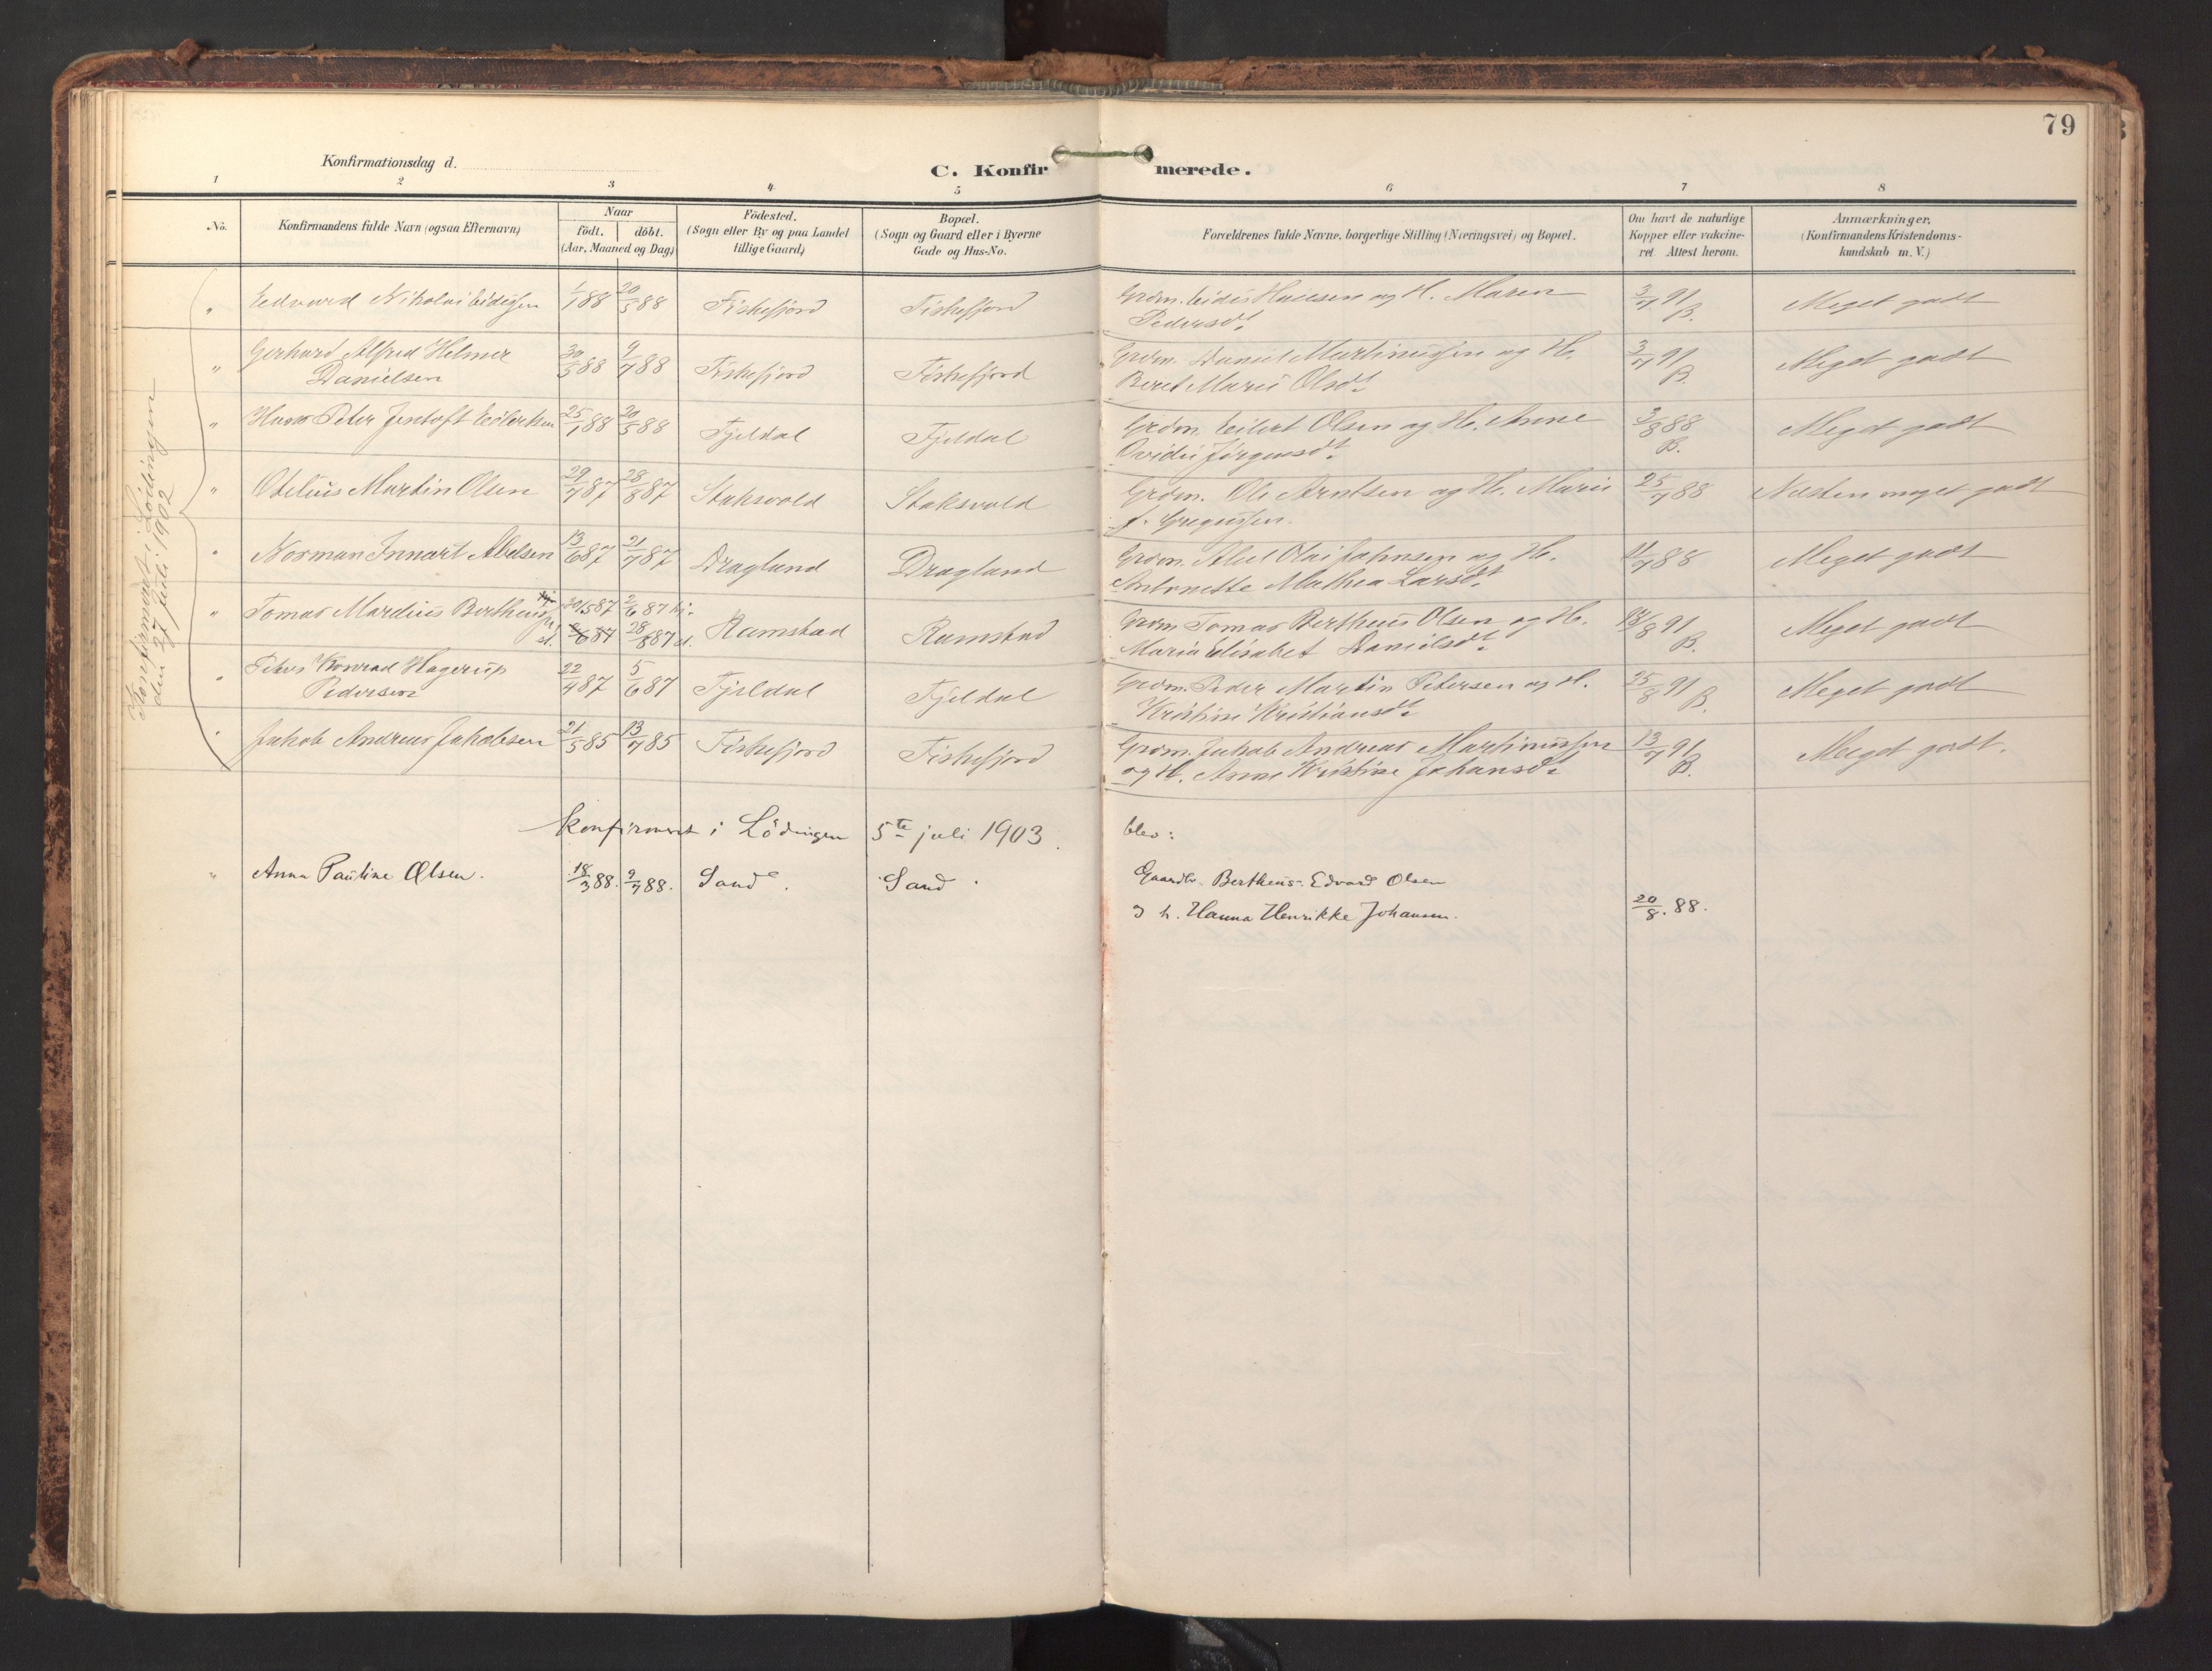 79
Konfirmationsdag d.
C. Konfirmerede.
1 2 3 4 5 6 7 8
No. Konfirmandens fulde Navn (ogsaa Efternavn) Naar födt. döbt. (Aar, Maaned og Dag) Födested. (Sogn eller By og paa Landet tillige Gaard) Bopæl. (Sogn og Gaard eller i Byerne Gade og Hus-No. Forældrenes fulde Navne, borgerlige Stilling (Næringsvei) og Bopæl. Om havt de naturlige Kopper eller vakcineret Attest herom. Anmærkninger. (Konfirmandens Kristendomskundskab m. V.)
Konfirmeret i Lödingen
den 27 juli 1902
" Edvard Nikolai Eidissen 1/1 88 20/5 88 Fiskefjord Fiskefjord Grdm. Eidis Hansen og H. Maren 3/7 91 Meget godt
Pedersdt. B.
" Gerhard Alfred Helmer 30/5 88 9/7 88 Fiskefjord Fiskefjord Grdm. Daniel Martinussen og H. 3/7 91 Meget godt
Danielsen Beret Marie Olsdt. B.
" Hans Peter Jentoft Eilertsen 25/1 88 20/5 88 Fjeldal Fjeldal Grdm. Eilert Olsen og H. Anne 3/8 88 Meget godt
Ovidie Jörgensdt. B.
" Otelius Martin Olsen 29/7 87 28/8 87 Staksvold Staksvold Grdm. Ole Arntsen og H. Marie 25/7 88 Næsten meget godt
f. Gregussen.
" Norman Innart Abelsen 13/6 87 21/7 87 Dragland Dragland Grdm. Abel Olai Johnsen og H. 11/7 88 Meget godt
Antonette Mathea Larsdt.
" Tomas Mardius Bertheussen 30/5 87 2/6 87 hj. Ramstad Ramstad Grdm. Tomas Bertheus Olsen og H. 18/8 91 Meget godt
28/8 87 st. Maria Elisabet Danielsdt. B.
" Petrus Konrad Hagerup 22/4 87 5/6 87 Fjeldal Fjeldal Grdm. Peder Martin Petersen og H. 25/8 91 Meget godt
Pedersen Kristine Kristiansdt. B.
" Jakob Andreas Jakobsen 21/5 85 13/7 85 Fiskefjord Fiskefjord Grdm. Jakob Andreas Martinussen 13/7 91 Meget godt.
og H. Anne Kristine Johansdt. B.
Konfirmeret i Lödingen 5te juli 1903. blev:
" Anna Pauline Olsen. 18/3 88. 9/7 88. Sand. Sand. Gaardbr. Bertheus Edvard Olsen
og h. Hanna Henrikke Johansen. 20/8. 88.